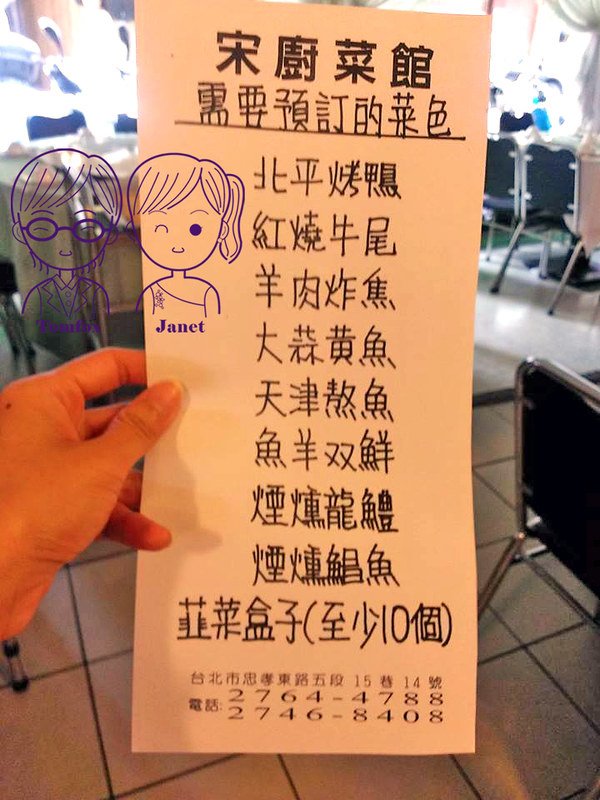 宋廚菜館
需要預訂的菜色
北平烤鴨
紅燒牛尾
羊肉炸焦
大蒜黃魚
天津熬魚
魚羊双鮮
煙燻龍鱧
煙燻鯧魚
韮菜盒子(至少10個)
台北市忠孝東路五段15巷14號
電話:2764-4788
2746-8408
Janet